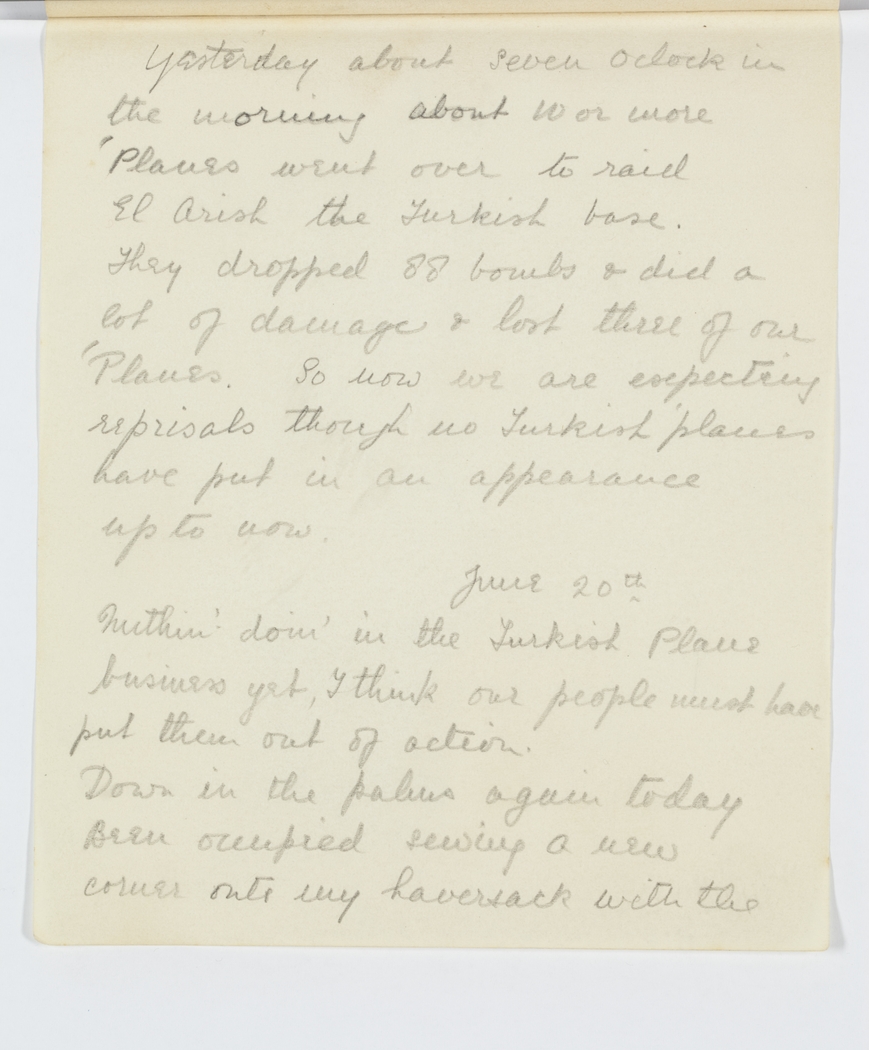 Yesterday about seven oclock in
the morning about 10 or more
'Planes went over to raid
El Arish the Turkish base.
They dropped 88 bombs & did a
lot of damage & lost three of our
'Planes. So now we are expecting
reprisals though no Turkish 'planes
have put in an appearance
up to now.
June 20th
Nuthin' doin' in the Turkish Plane
business yet, I think our people must have
put them out of action.
Down in the palms again today
Been occupied sewing a new
corner onto my haversack with the